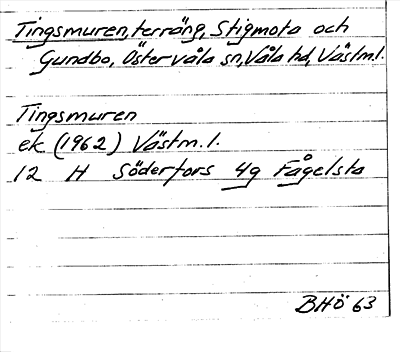 Tingsmuren, terräng, Stigmota och
Gundbo, Östervåla sn, Våla hd, Västm.l.
Tingsmuren
ek (1962) Västm.l.
12 H Söderfors 4g Fågelsta
BHÖ 63